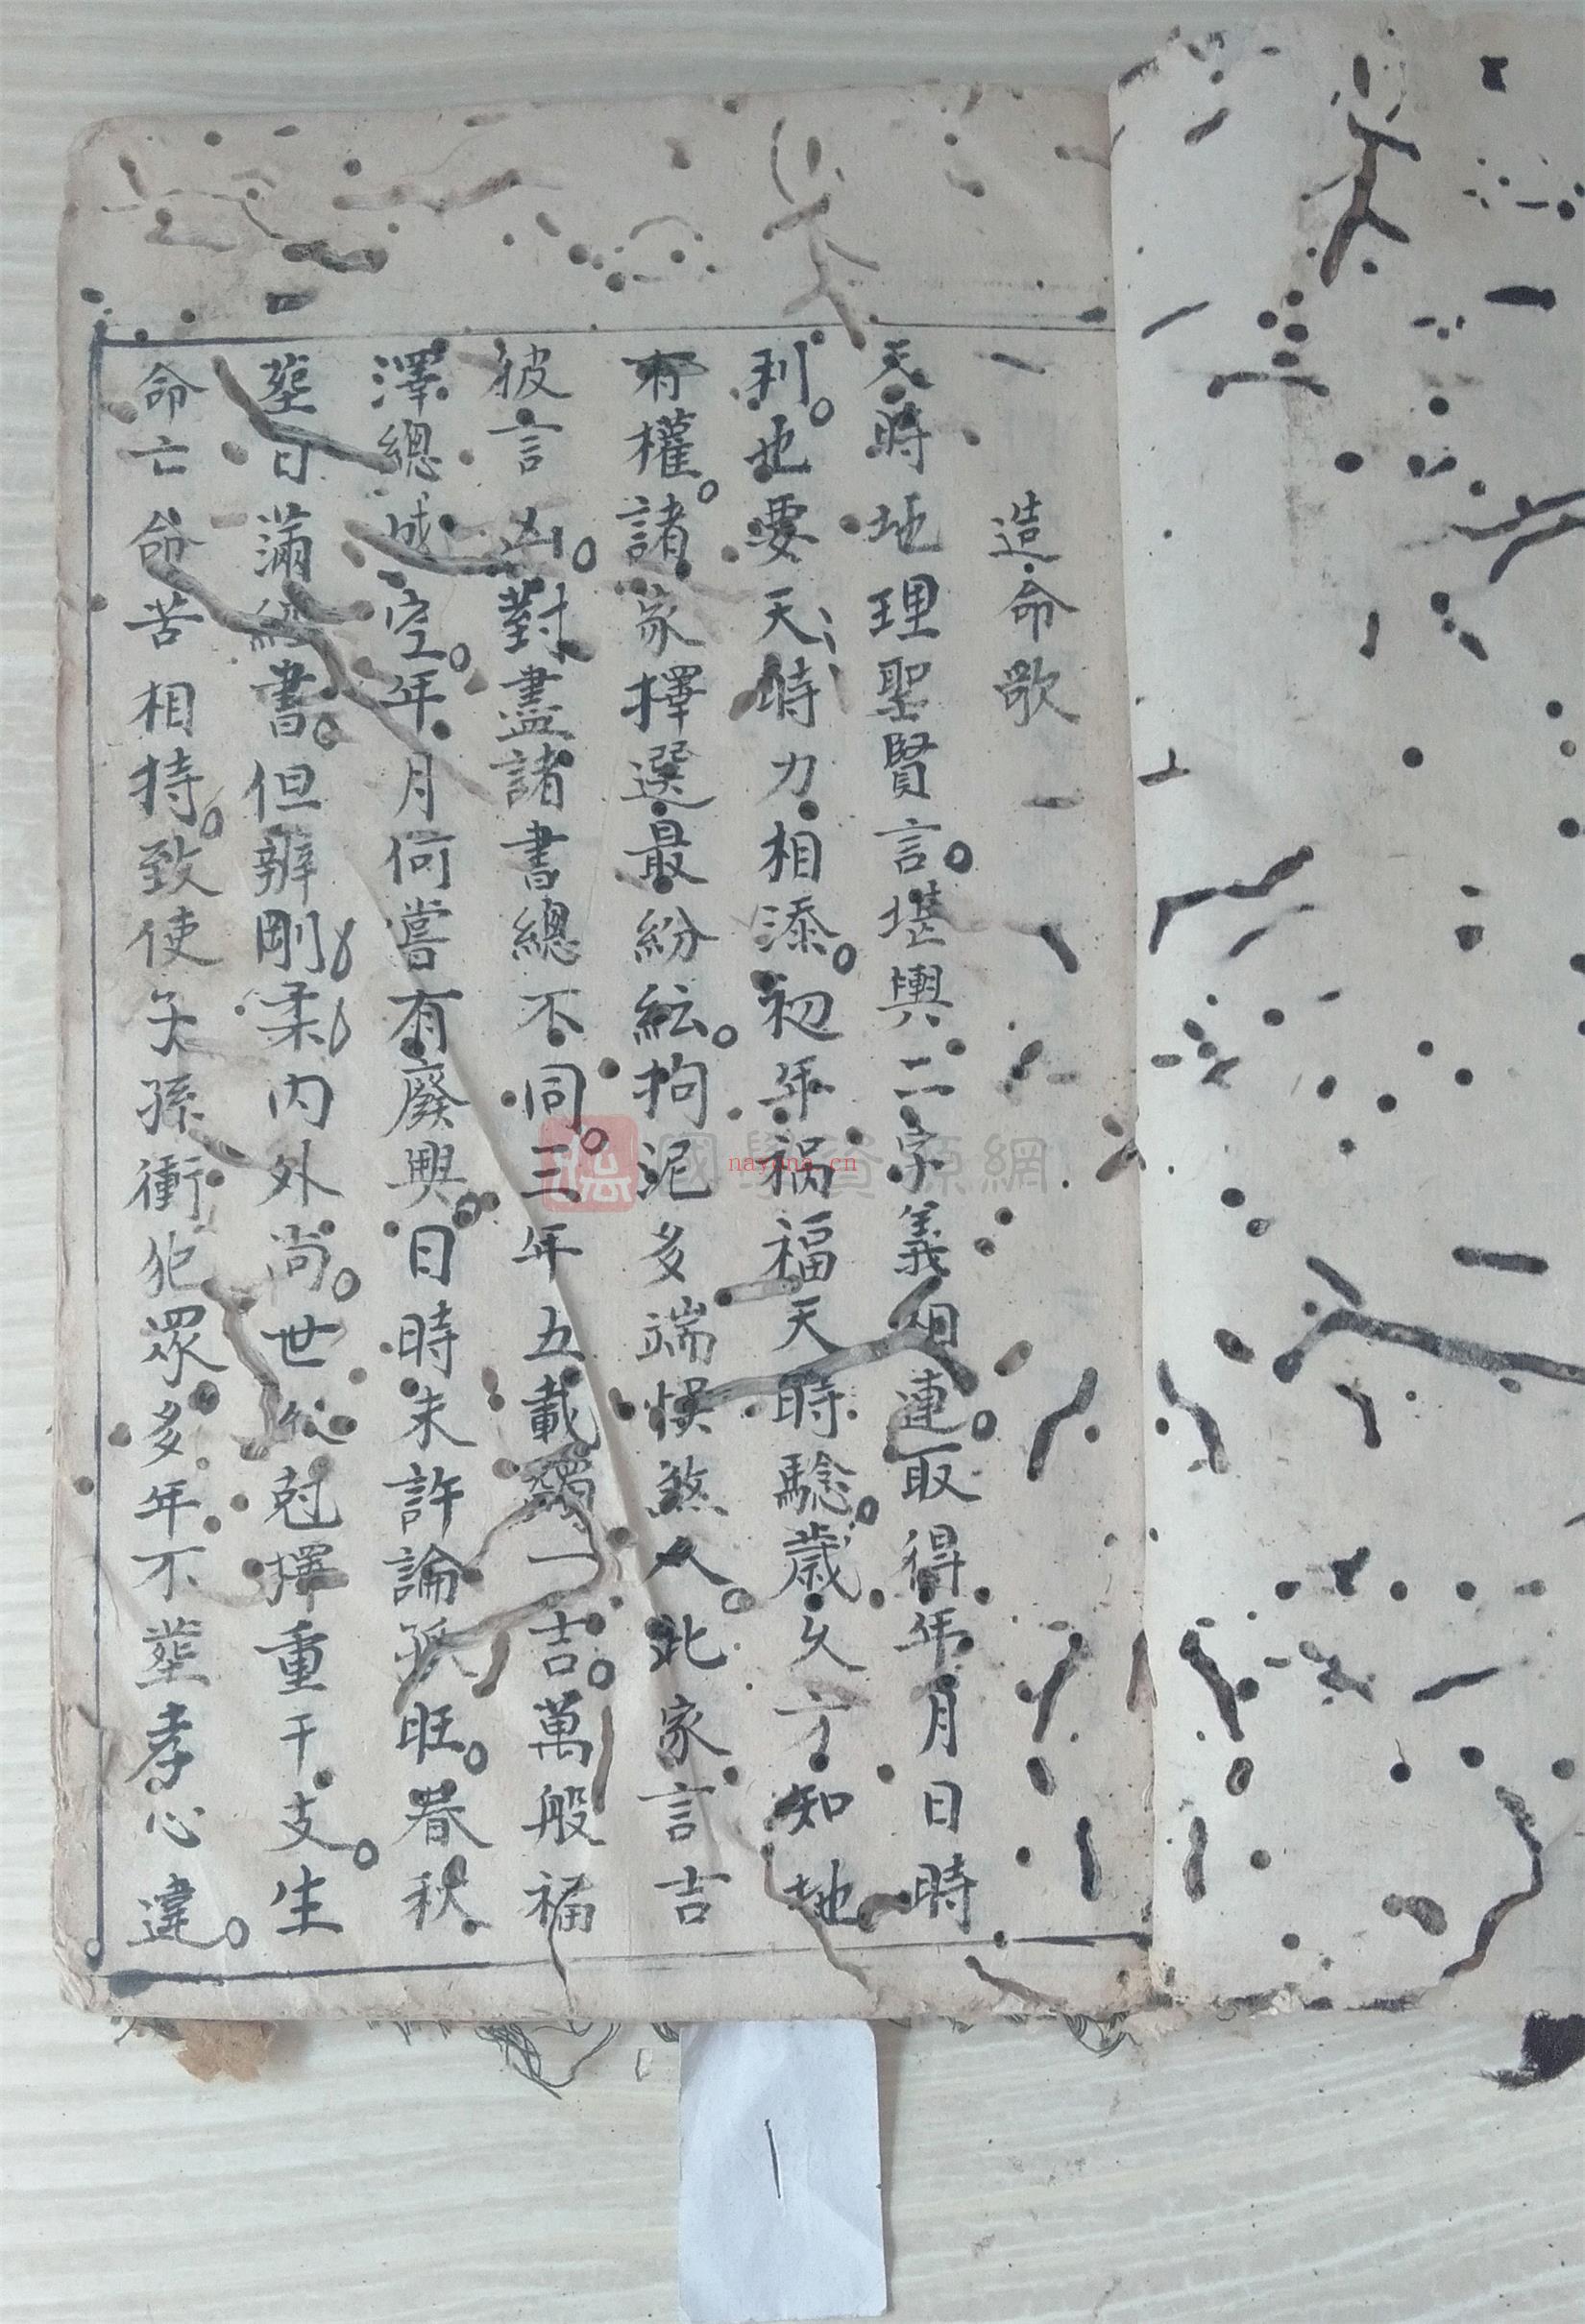 造命歌
天時地理聖賢言。堪輿二字義相連。取得年月日時
利。也要天時力相添。初年禍福天時驗。歲久方知地
有權。諸家擇選最紛紜。拘泥多端悞煞人。此家言吉
彼言凶。對盡諸書總不同。三年五載一吉。萬般福
澤總成空。年月何嘗有廢興。日時未許論孤旺。春秋
塟日滿經書。但辨剛柔內外尚。世尅擇重干支。生
命亡命苦相持。致使子孫衝犯眾多年不塟孝心違。
國學資源網
nayona.cn